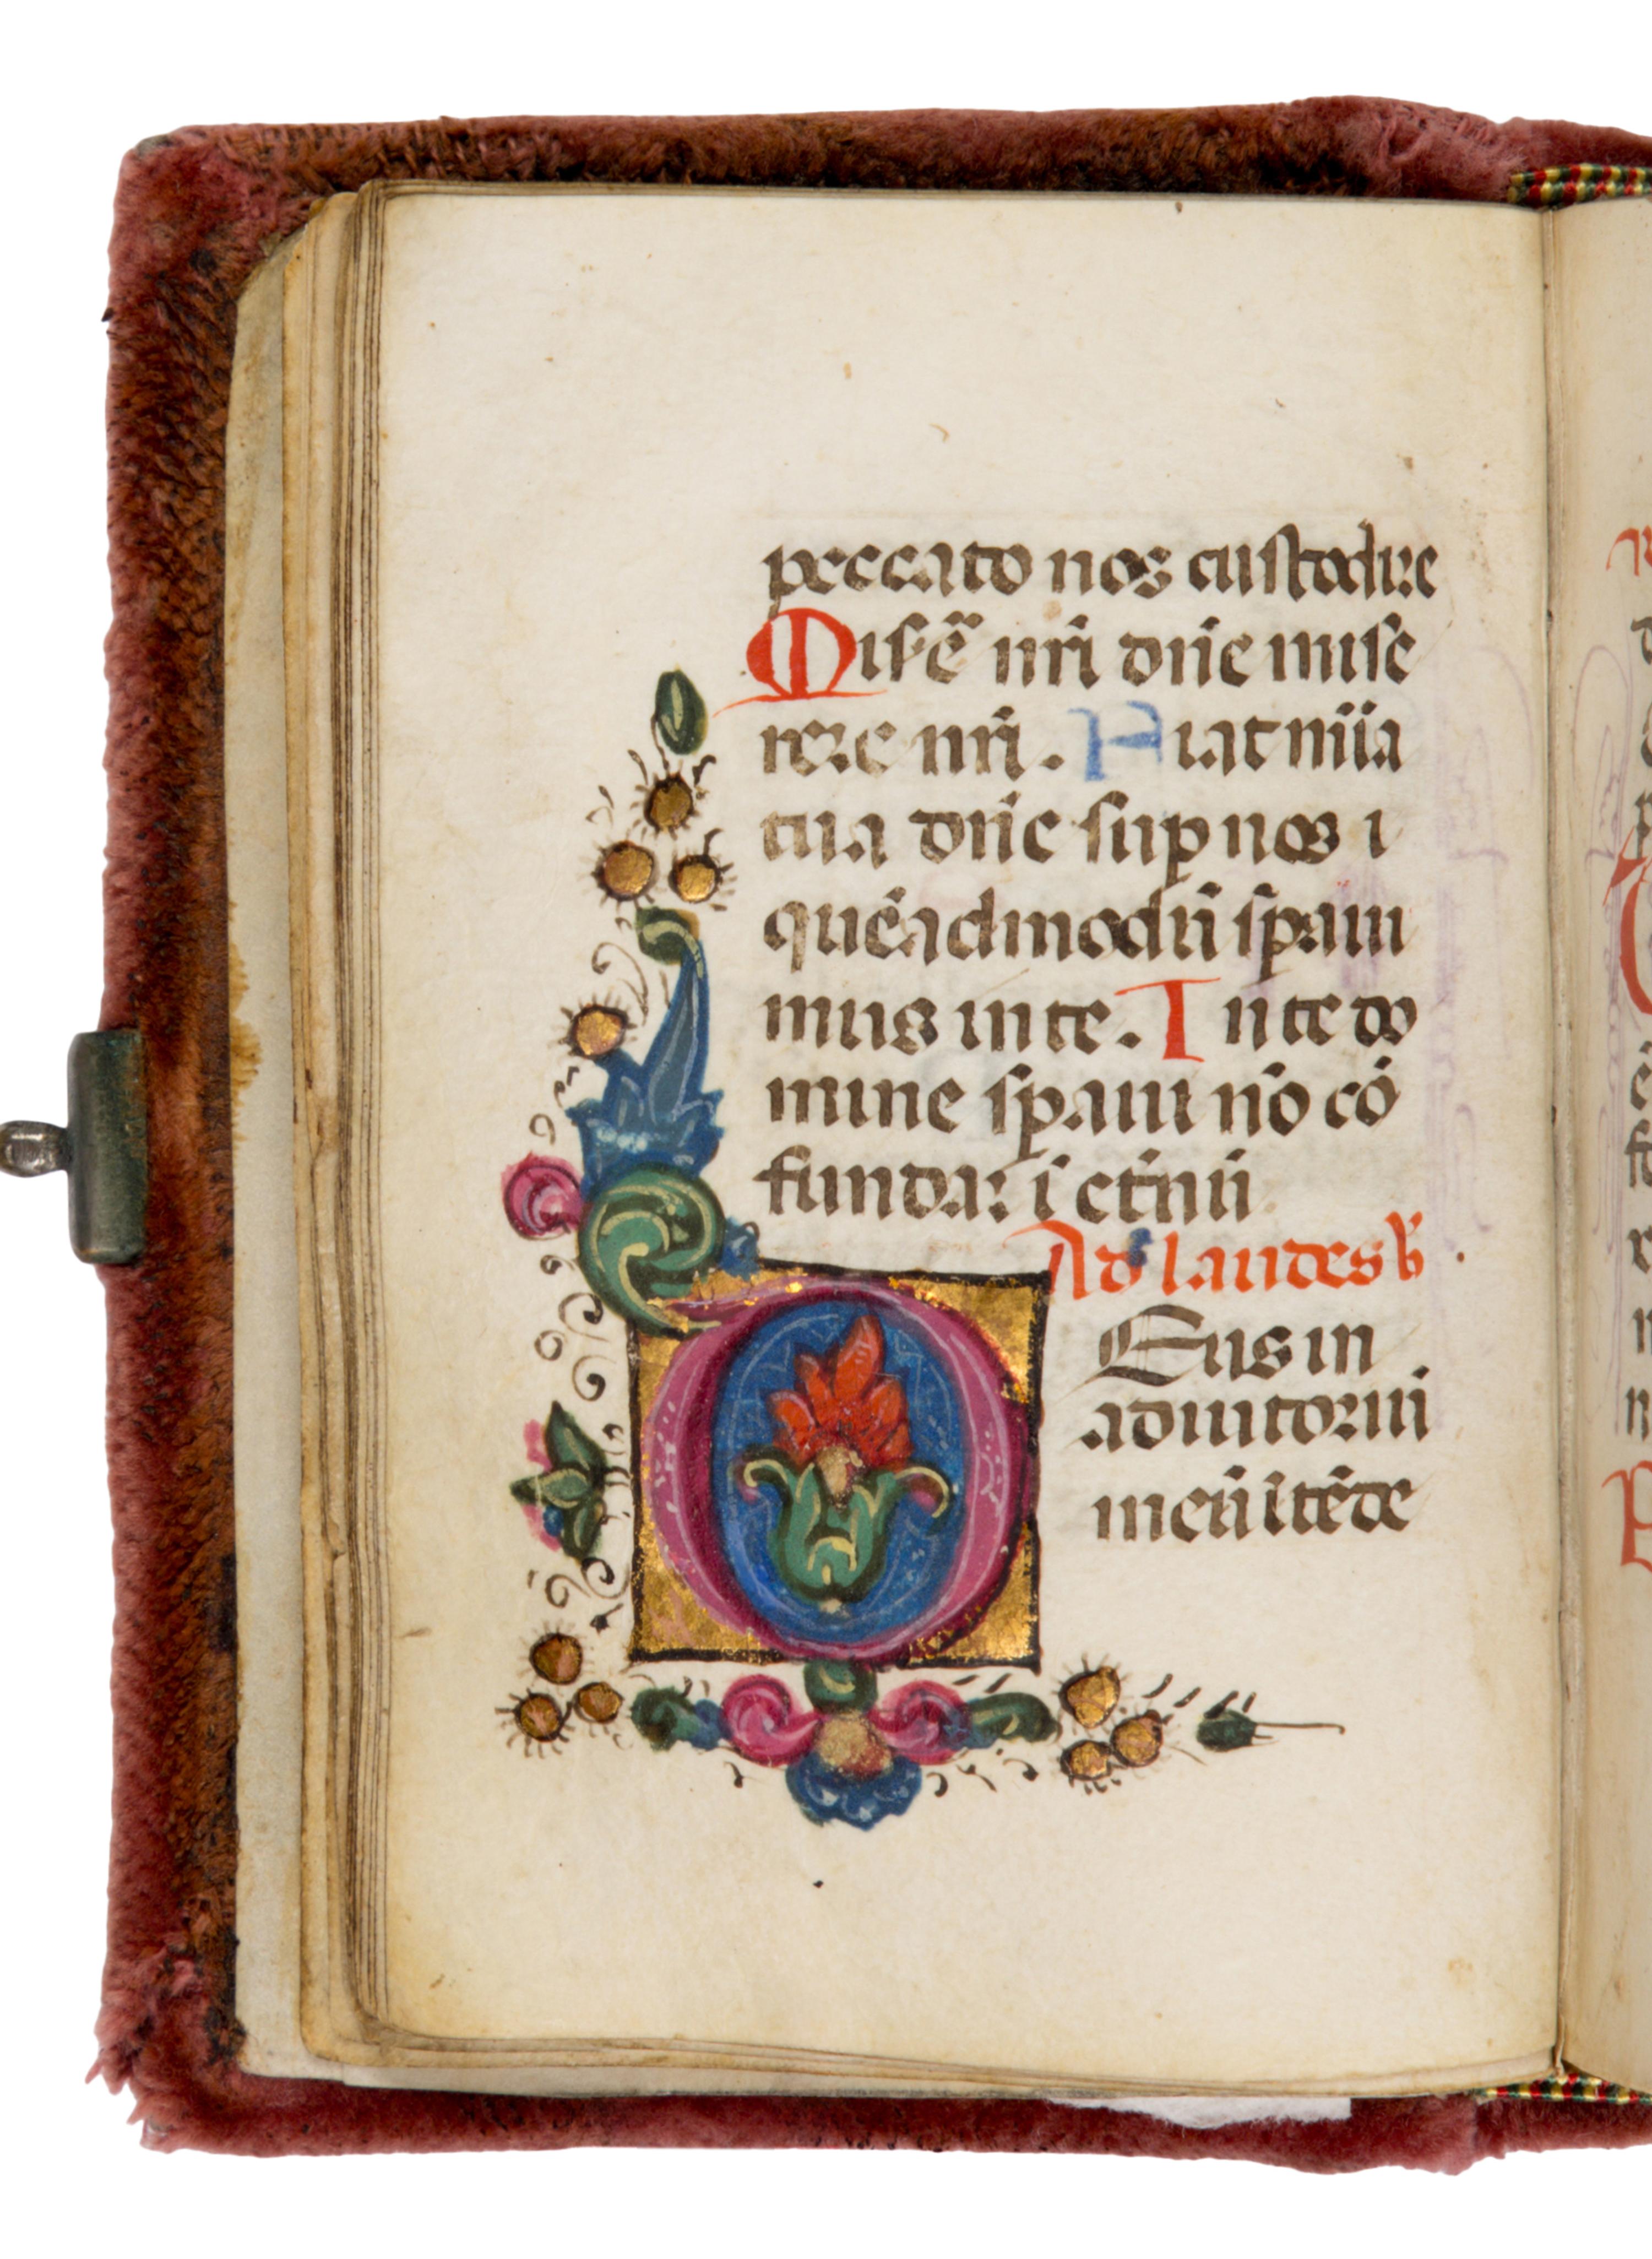 peccato nos custodire
Misẽ nr̃i dñe mise
rere nr̃i. Fiat mĩa
tua dñe sup nos i
quẽadmodũ sꝑaui
mus in te. In te do
mine sꝑaui nõ cõ
fundar ĩ etñũ
Ad laudes b̃
Deus in
adiutoriũ
meũ ĩtẽde